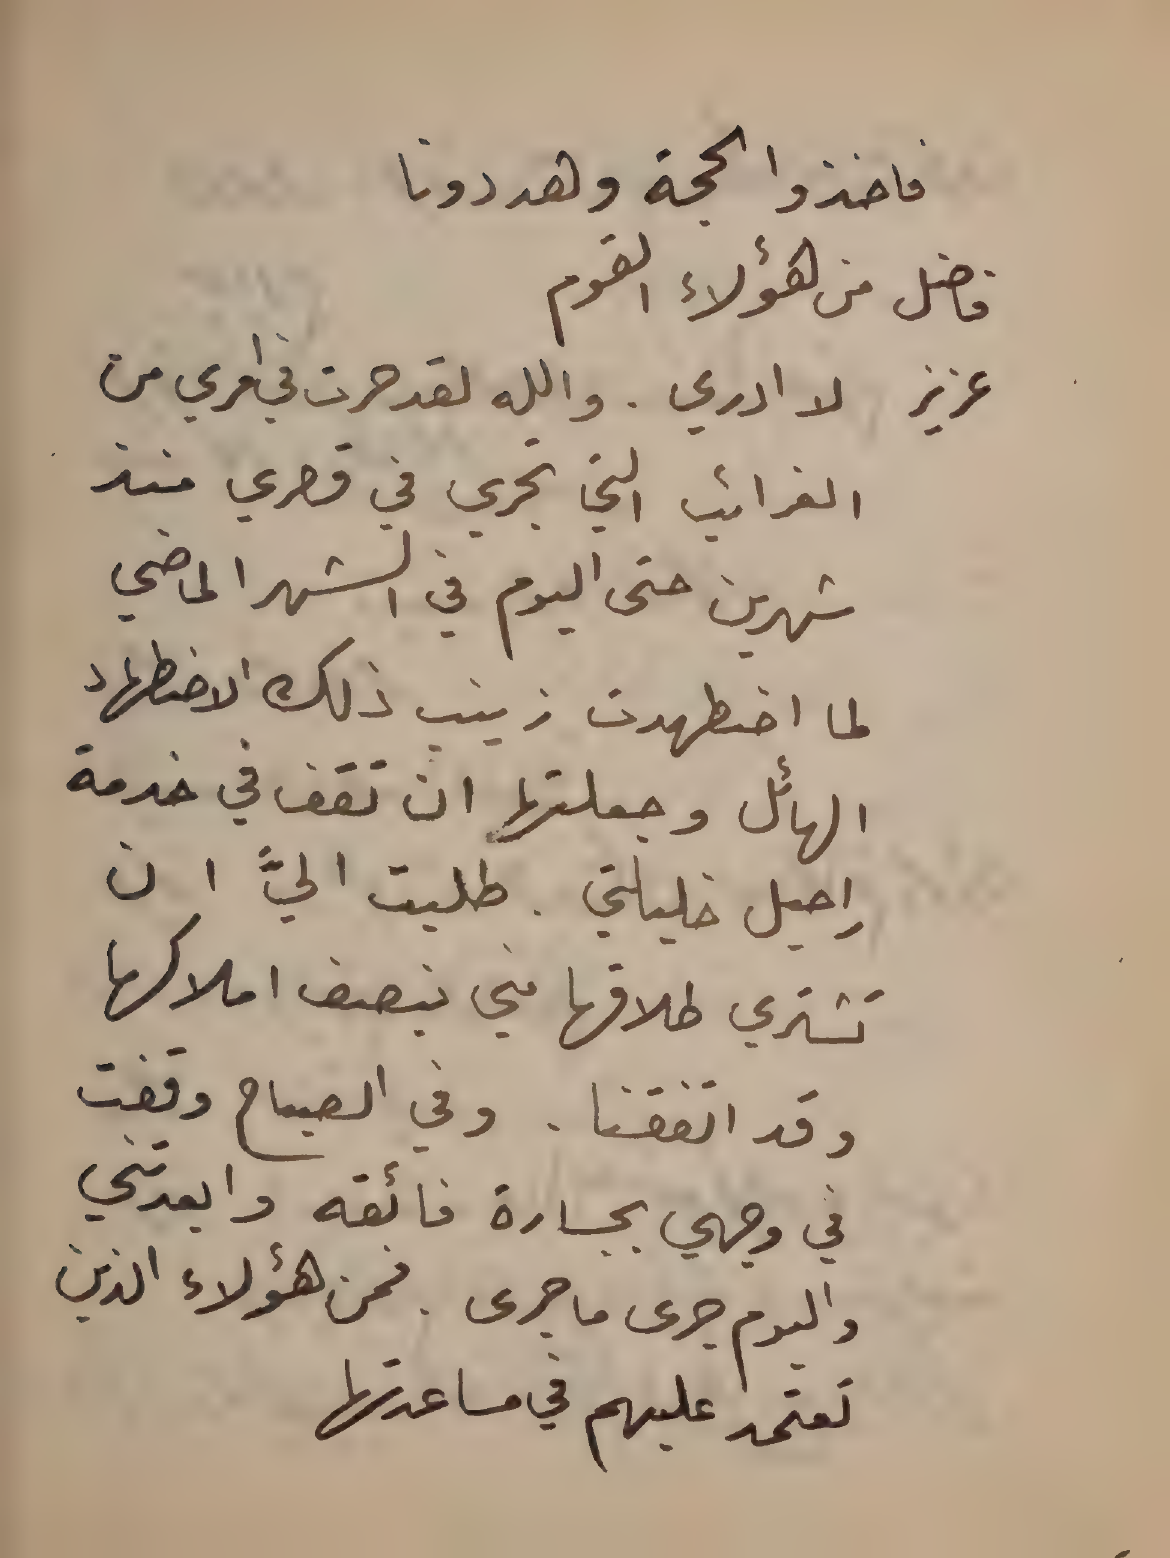 فاخذوا الحجة وهددونا
فاضل من هؤلاء القوم
عزيز لا ادري . والله لقد حرت في امري من
الغرائب التي تجري في قصري منذ
شهرين حتى اليوم في الشهر الماضي
لما اضطهدت زينب ذلك الاضطهاد
الهائل وجعلتها ان تقف في خدمة
راحيل خليلتي . طلبت اليَّ ان
تشتري طلاقها مني بنصف املاكها
وقد اتفقنا . وفي الصباح وقفت
في وجهي بجسارة فائقه وابعدتني
واليوم جرى ماجرى . فمن هؤلاء الذين
تعتمد عليهم في مساعدتها